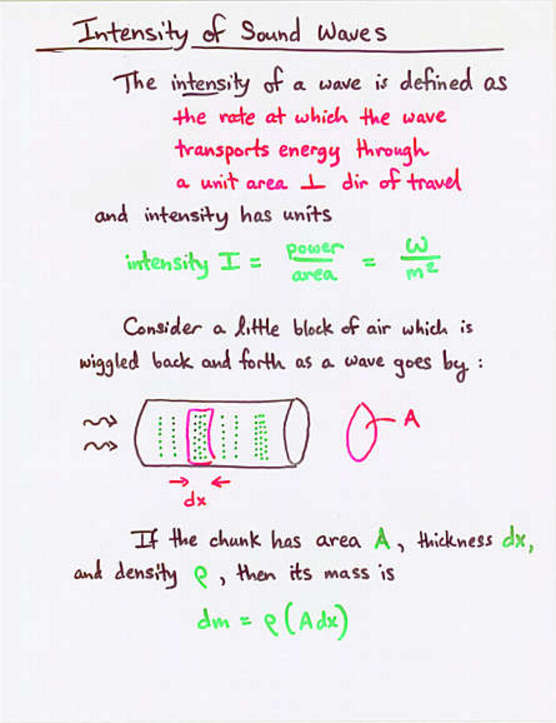 Intensity of Sound Waves
The intensity of a wave is defined as
the rate at which the wave
transports energy through
a unit area ⊥ dir of travel
and intensity has units
intensity I = power/area = W/m²
Consider a little block of air which is
wiggled back and forth as a wave goes by :
A
dx
If the chunk has area A, thickness dx,
and density ρ, then its mass is
dm = ρ(Adx)